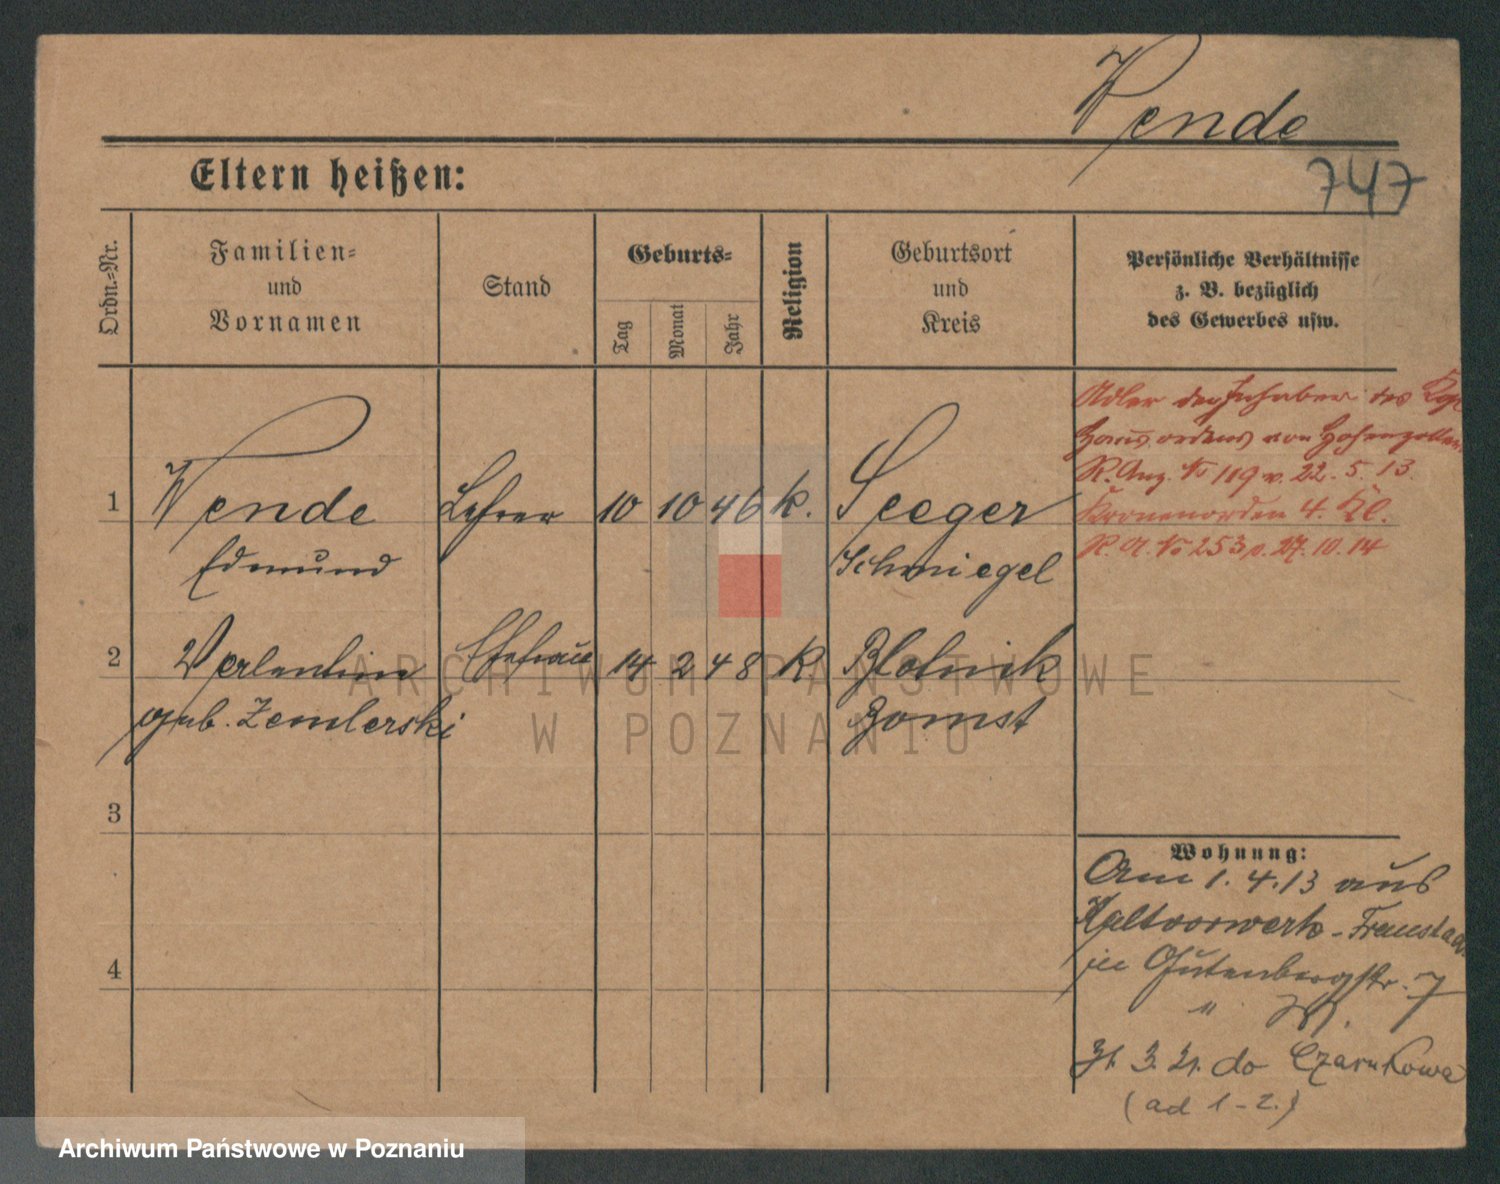 Wende
747
Eltern heißen:
Ordn.-Nr.
Familien-
und
Vornamen
Stand
Geburts-
Tag
Monat
Jahr
Religion
Geburtsort
und
Kreis
Persönliche Verhältnisse
z. B. bezüglich
des Gewerbes usw.
1
Wende
Edmund
Lehrer
10
10
46
k.
Seeger
Schmiegel
Adler der Inhaber des Kgl
Haus ordens von Hohenzollern
R. Anz. No 119 v. 22. 5. 13.
Kronenorden 4. Kl.
R. A. No 253 v. 27. 10. 14
2
geb. Zemlerski
Ehefrau
14
2
48
k.
Blotnik
Bomst
3
4
Wohnung:
Am 1. 4. 13 aus
Kaltvorwerk - Fraustadt
in Gutenbergstr. 7
do Czarnkowa
(ad 1-2.)
ARCHIWUM PAŃSTWOWE
W POZNANIU
Archiwum Państwowe w Poznaniu